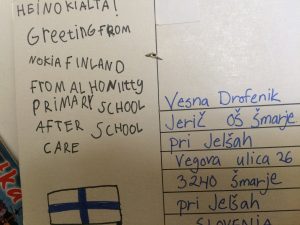 HEI NOKIALTA!
Greeting FROM
NOKIA FINLAND
FROM ALHONiitty
PRIMARY SCHOOL
AFTER SCHOOL
CARE
Vesna Drofenik
Jerič OŠ Šmarje
pri Jelšah
Vegova ulica 26
3240 Šmarje
pri Jelšah
SLOVENIJA